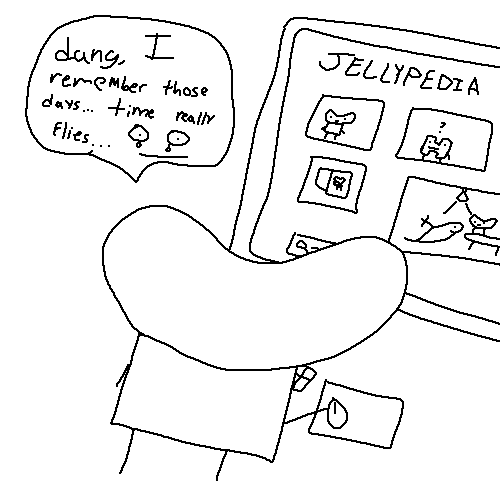 dang, I
remember those
days... time really
flies...
JELLYPEDIA
?